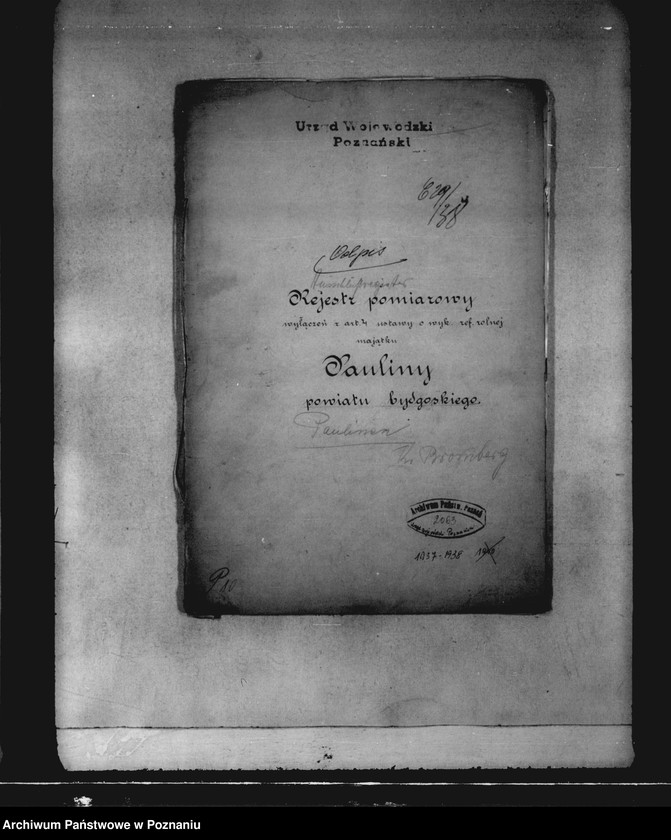 Urząd Wojewodzki
Poznański
Odpis
Rejestr pomiarowy
wyłączeń z art 4 ustawy o wyk. ref. rolnej
majątku
Pauliny
powiatu bydgoskiego.
Paulinen
Bromberg
Archiwum Państw. Poznań
2063
1937-1938
P
Archiwum Państwowe w Poznaniu